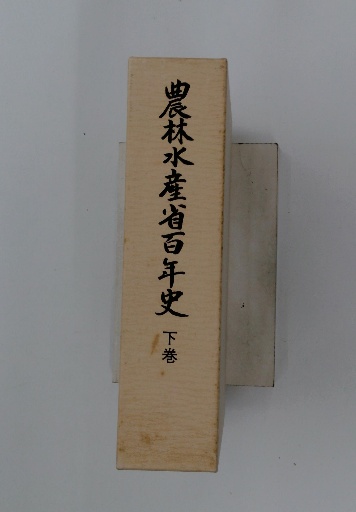 農林水産省百年史
下巻